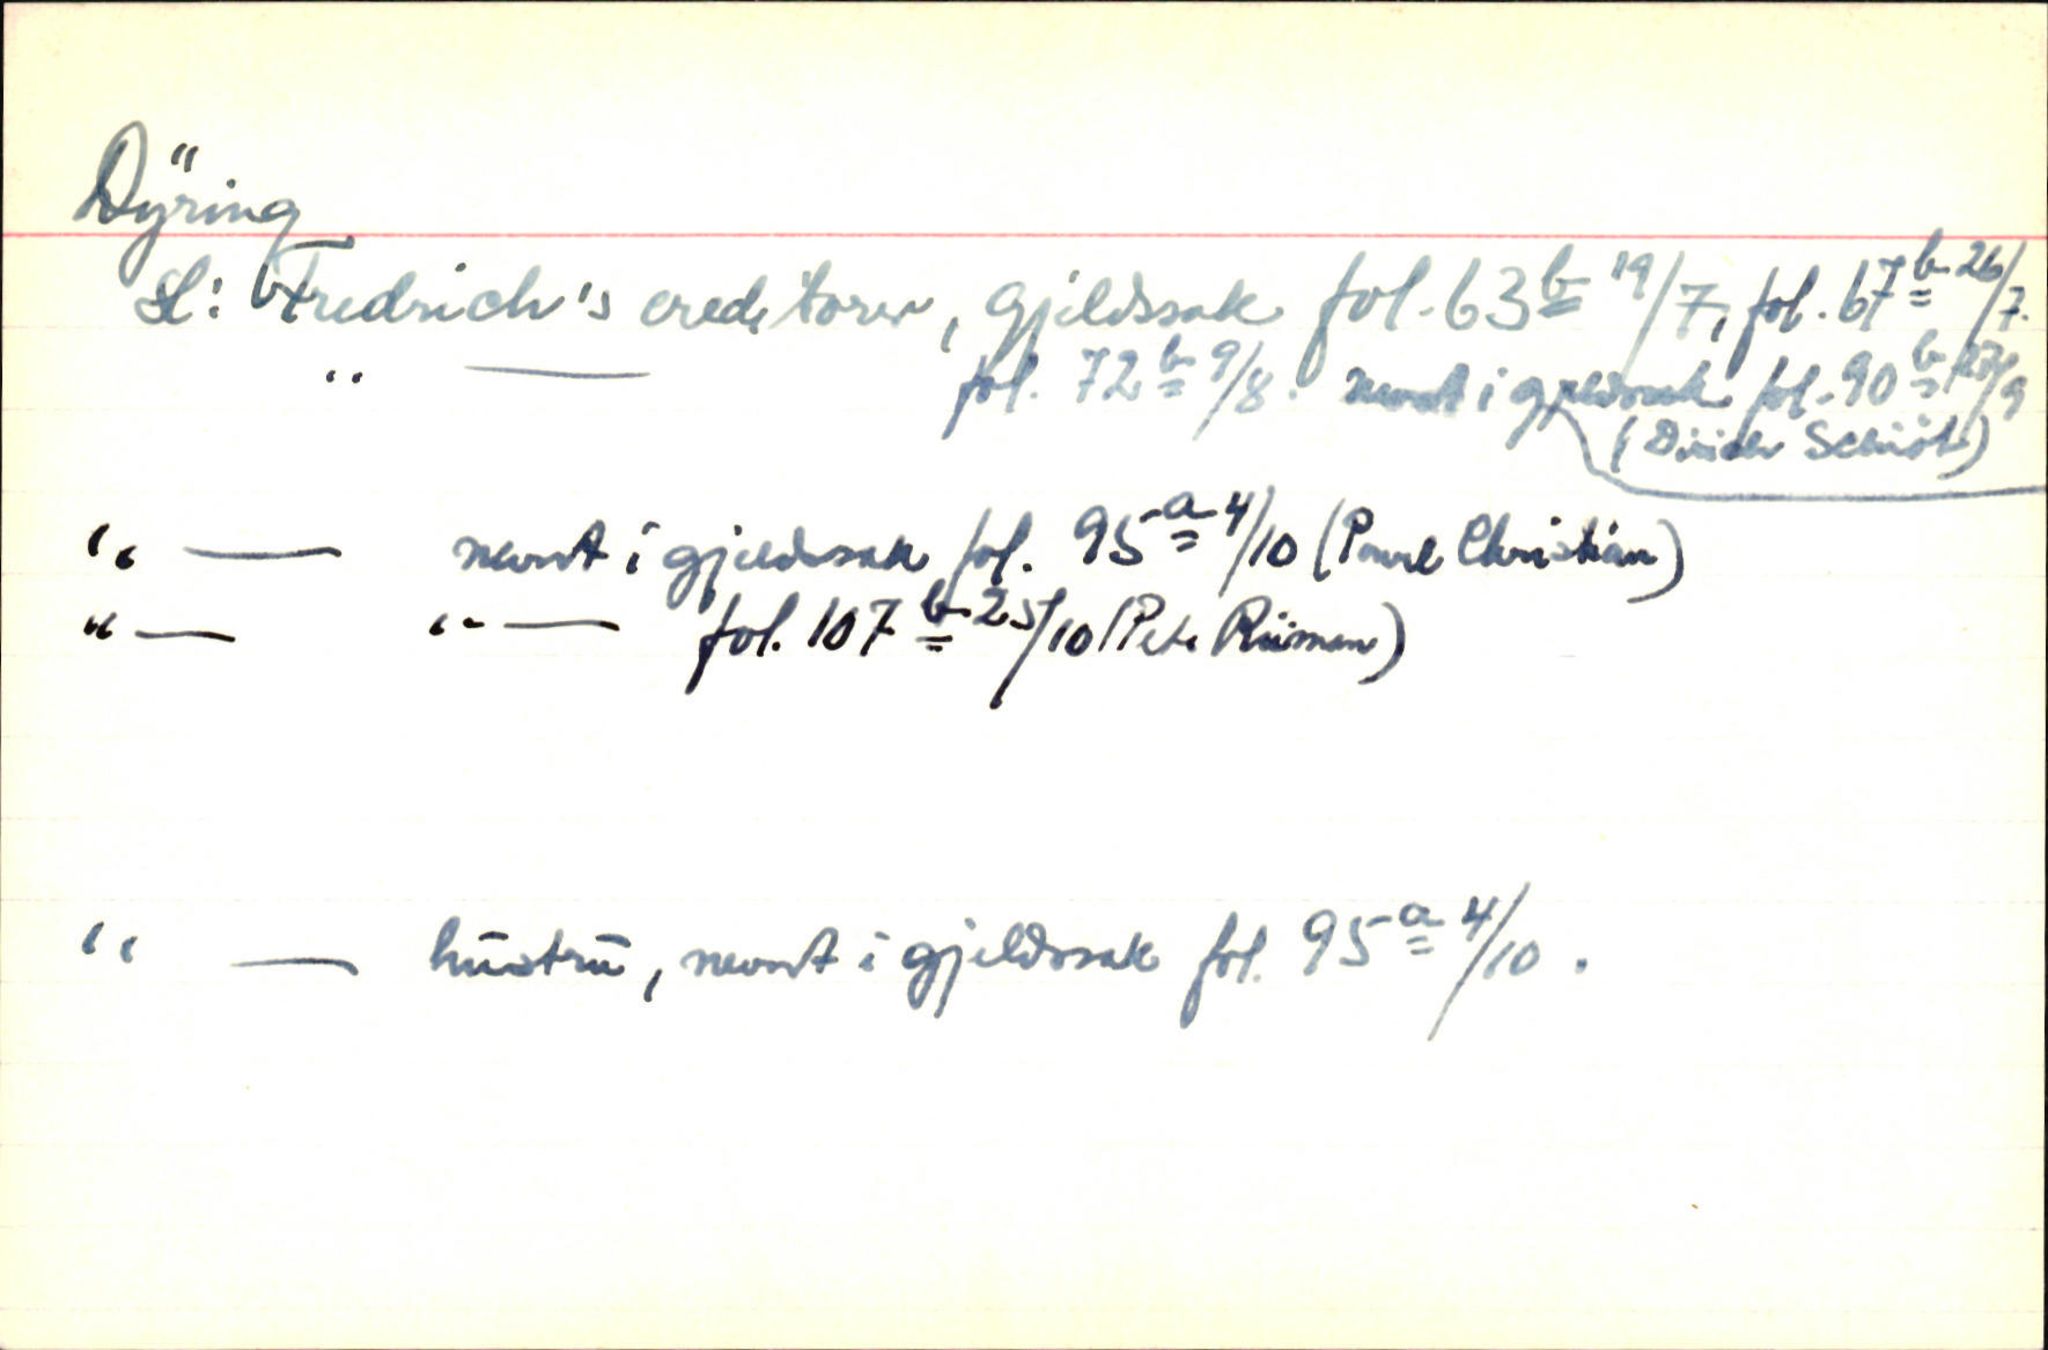 Dÿring
Sl: Fredrich's creditorer, gjeldssak fol. 63 b 19/7, fol. 67 b 26/7.
" — fol. 72 b 9/8. nevnt i gjeldssak fol. 90 b /9
(Dirich Schiöt)
" — nevnt i gjeldssak, fol. 95 a 4/10 (Pavel Christian)
" — " — fol. 107 b 25/10 (Peter Riisman)
" — hūstrū, nevnt i gjeldssak fol. 95 a 4/10.